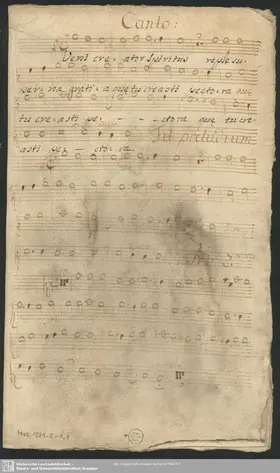 Canto:
Veni creator Spiritus reple su
perna gratia quae tu creasti pectora que
tu creasti pe - - - ctora que tu cre
Fit praeludium
asti pe - ctora
Mus. 1271-E-1,1
Sächsische Landesbibliothek -
Staats- und Universitätsbibliothek Dresden